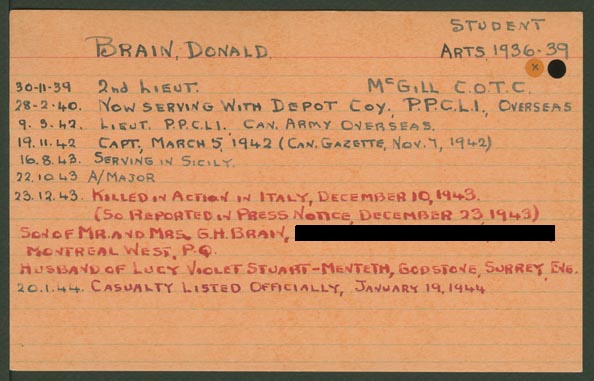 STUDENT
BRAIN, DONALD. ARTS, 1936-39
x
30-11-39 2nd LIEUT. McGILL C.O.T.C.
28-2-40. NOW SERVING WITH DEPOT COY., P.P.C.L.I., OVERSEAS
9.3.42. LIEUT. P.P.C.L.I., CAN. ARMY OVERSEAS.
19.11.42 CAPT., MARCH 5, 1942 (CAN. GAZETTE, NOV. 7, 1942)
16.8.43. SERVING IN SICILY.
22.10.43 A/MAJOR
23.12.43. KILLED IN ACTION IN ITALY, DECEMBER 10, 1943.
(SO REPORTED IN PRESS NOTICE, DECEMBER 23, 1943)
SON OF MR. AND MRS. G.H. BRAIN,
MONTREAL WEST, P.Q.
HUSBAND OF LUCY VIOLET STUART-MENTETH, GODSTONE, SURREY, ENG.
20.1.44. CASUALTY LISTED OFFICIALLY, JANUARY 19, 1944